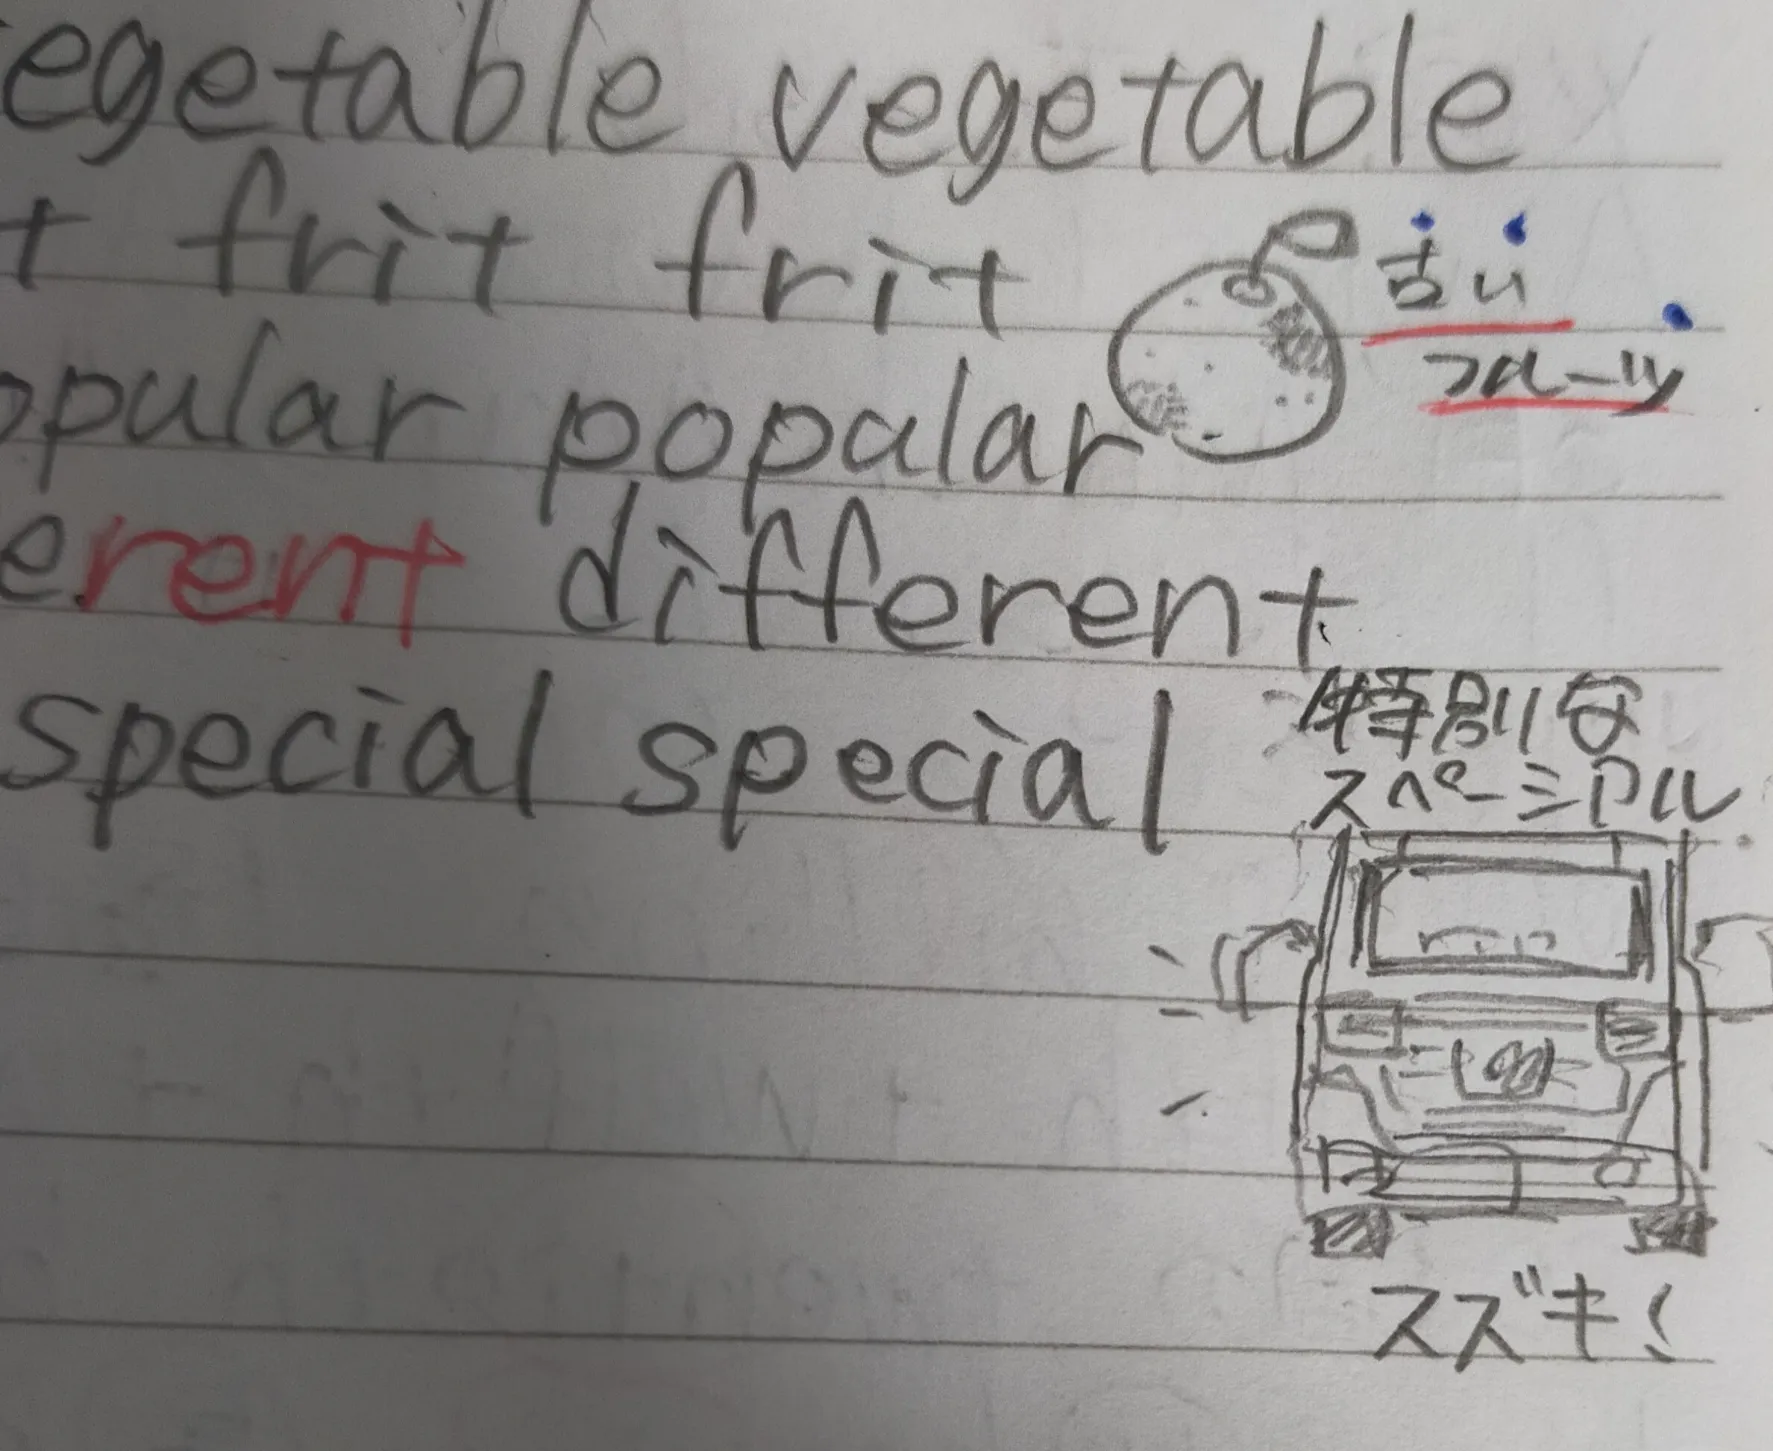 egetable vegetable
t frit frit
古い
フルーツ
opular popular
erent different
special special
特別な
スペーシアル
スズキ!